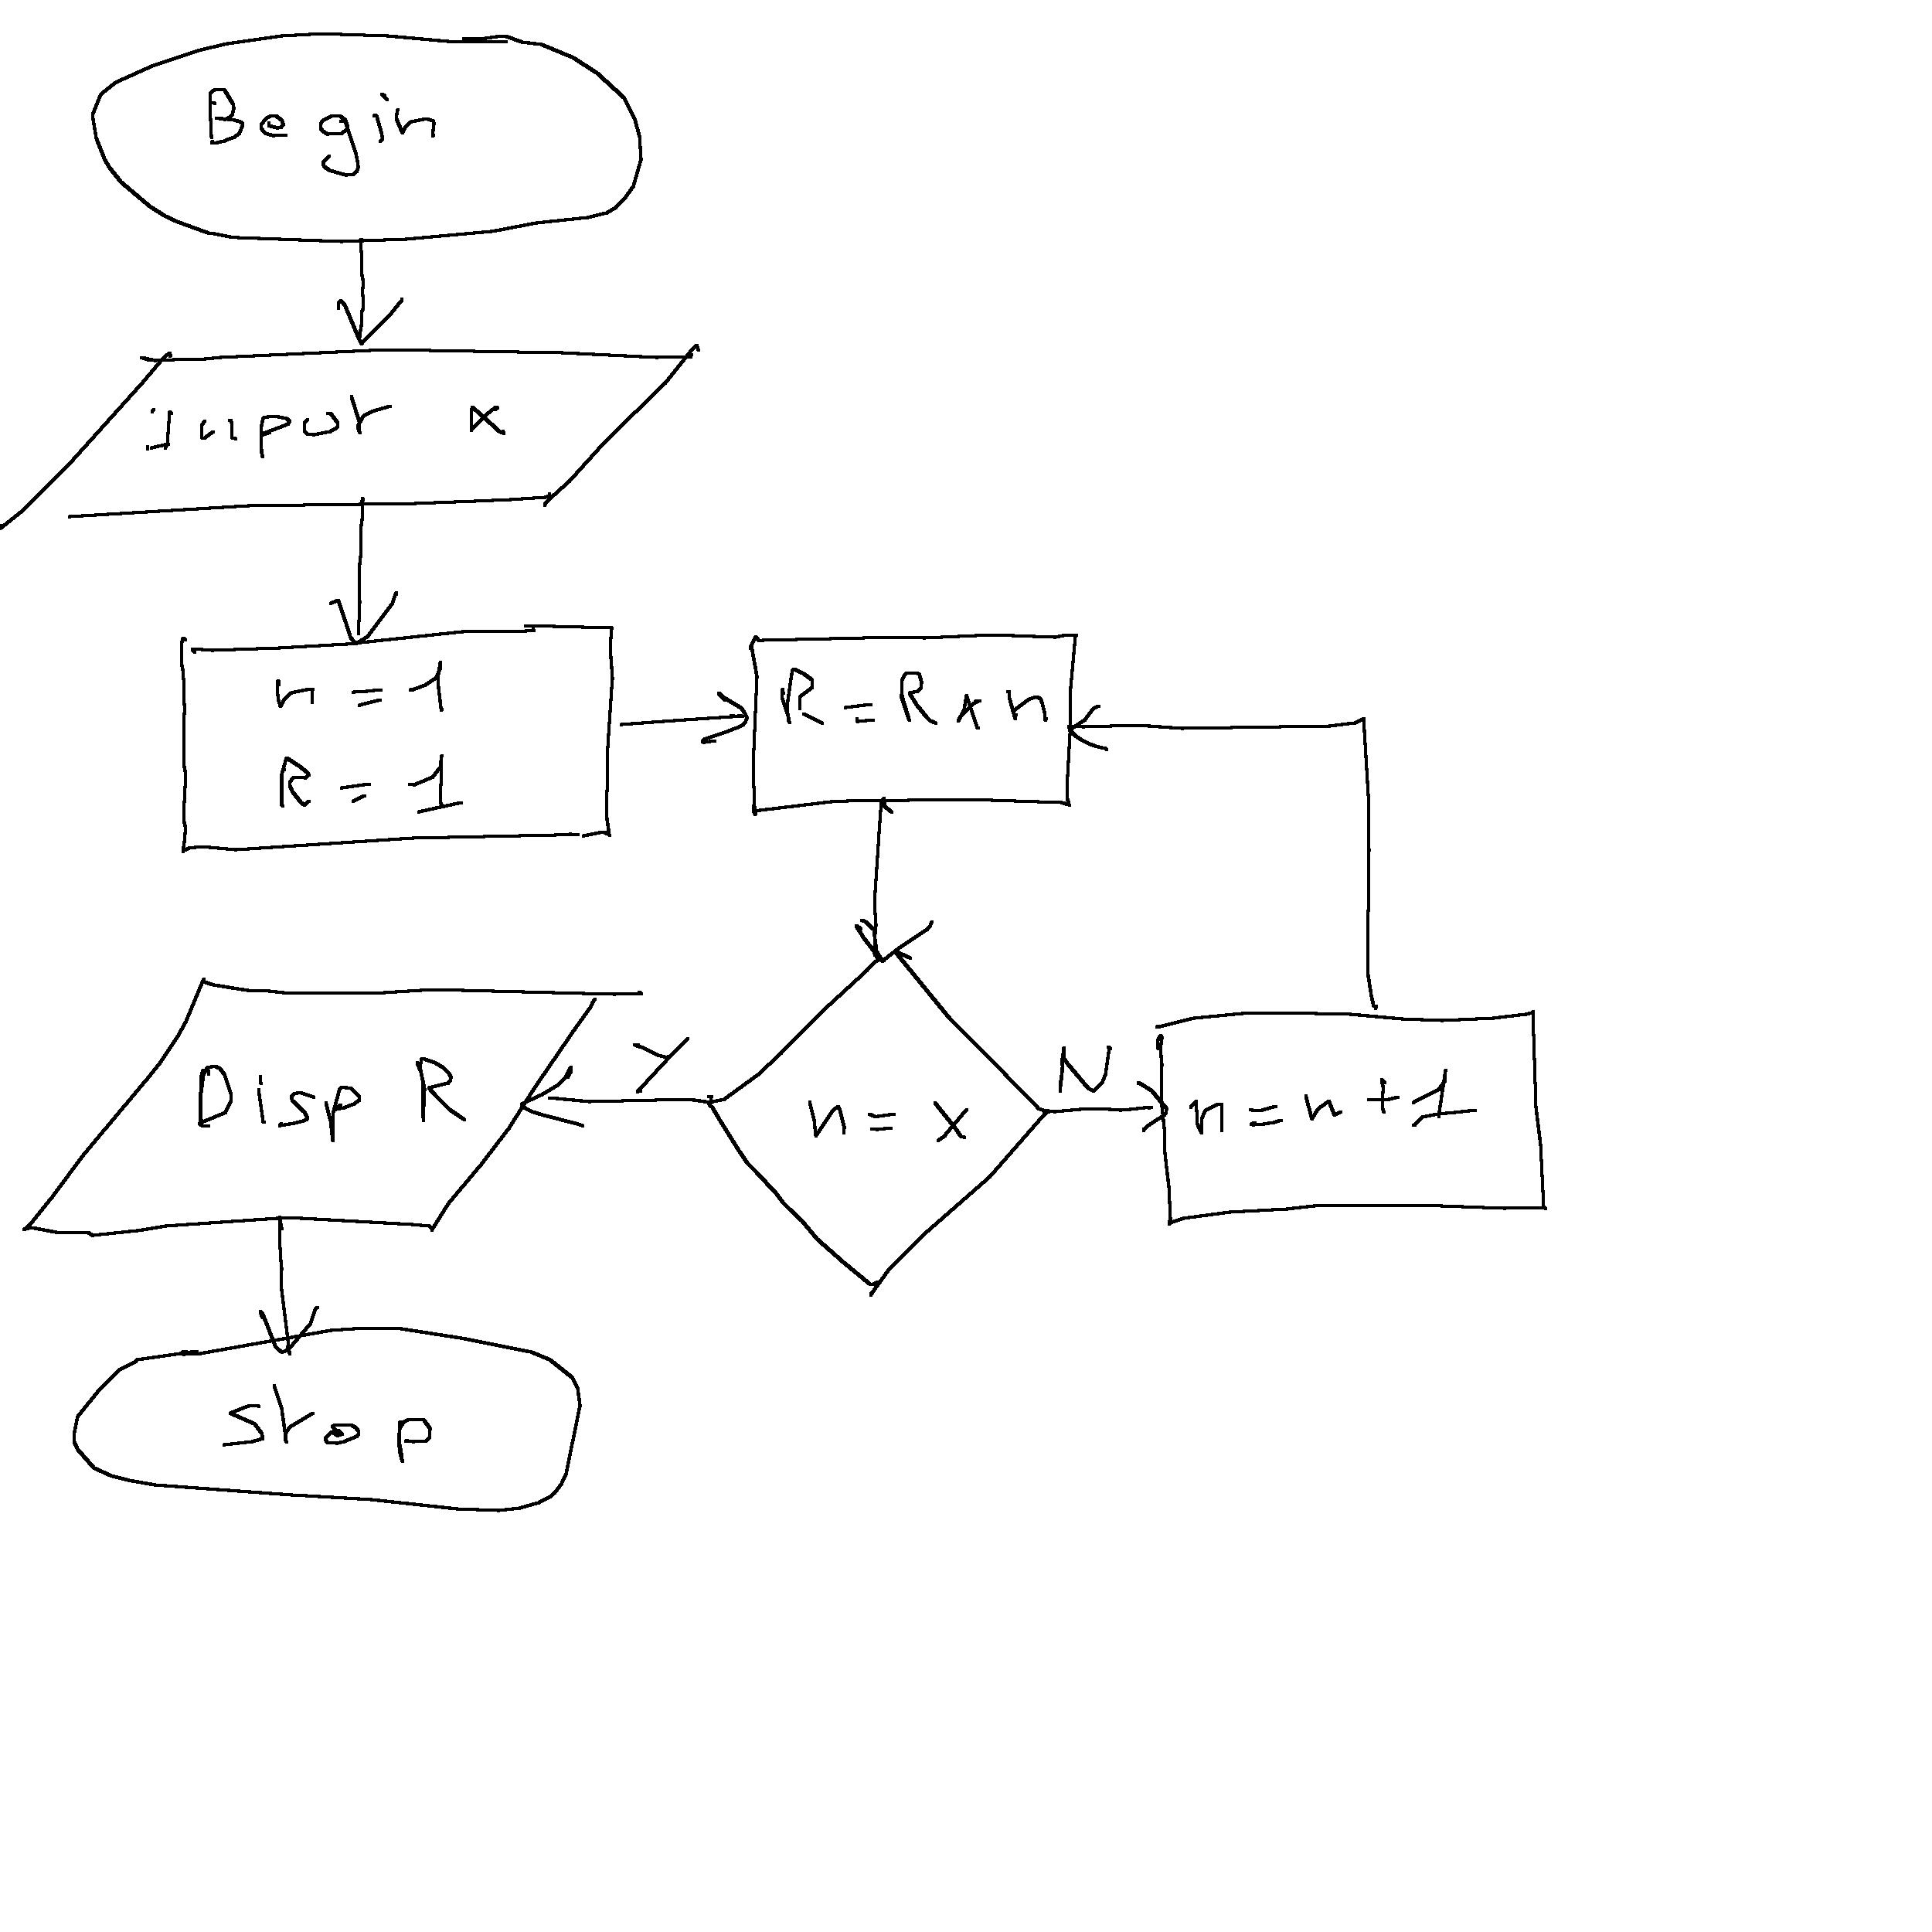 Begin
Input x
n = 1
R = 1
R = R x n
n = x
Y
N
n = n + 1
Disp R
Stop